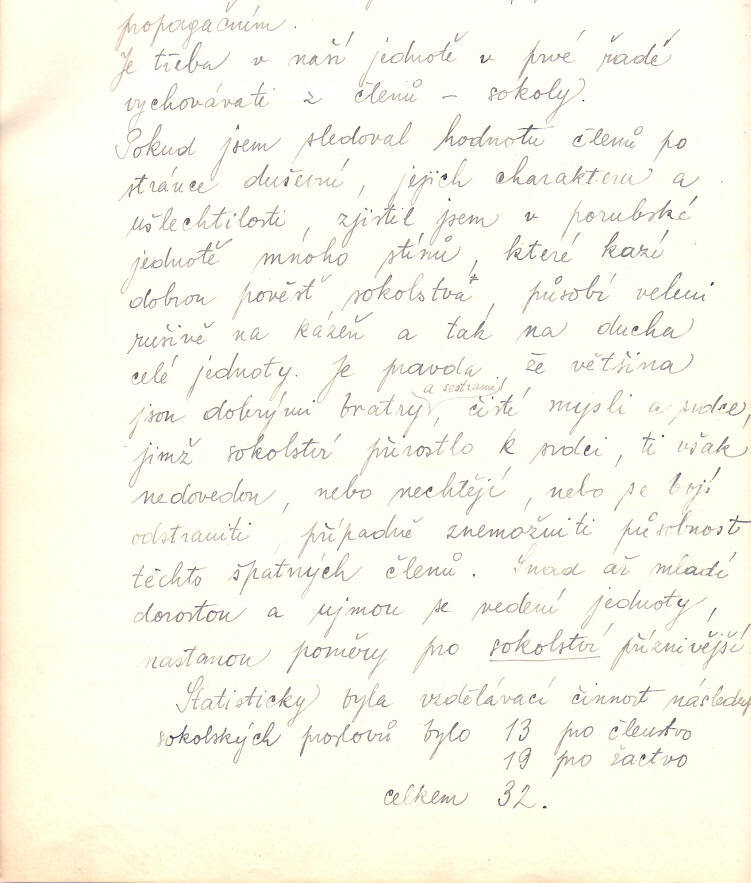 propagačním.
Je třeba v naší jednotě v prvé řadě
vychovávati z členů – sokoly.
Pokud jsem sledoval hodnotu členů po
stránce duševní, jejich charakteru a
ušlechtilosti, zjistil jsem v porubské
jednotě mnoho stínů, které kazí
dobrou pověsť sokolstva, působí velmi
rušivě na kázeň a tak na ducha
celé jednoty. Je pravda, že většina
a sestrami
jsou dobrými bratry, čisté mysli a srdce,
jimž sokolství přirostlo k srdci, ti však
nedovedou, nebo nechtějí, nebo se bojí
odstraniti, případně znemožniti působnost
těchto špatných členů. Snad až mladí
dorostou a ujmou se vedení jednoty,
nastanou poměry pro sokolství příznivější.
Statisticky byla vzdělávací činnost následuj
sokolských proslovů bylo 13 pro členstvo
19 pro žactvo
celkem 32.